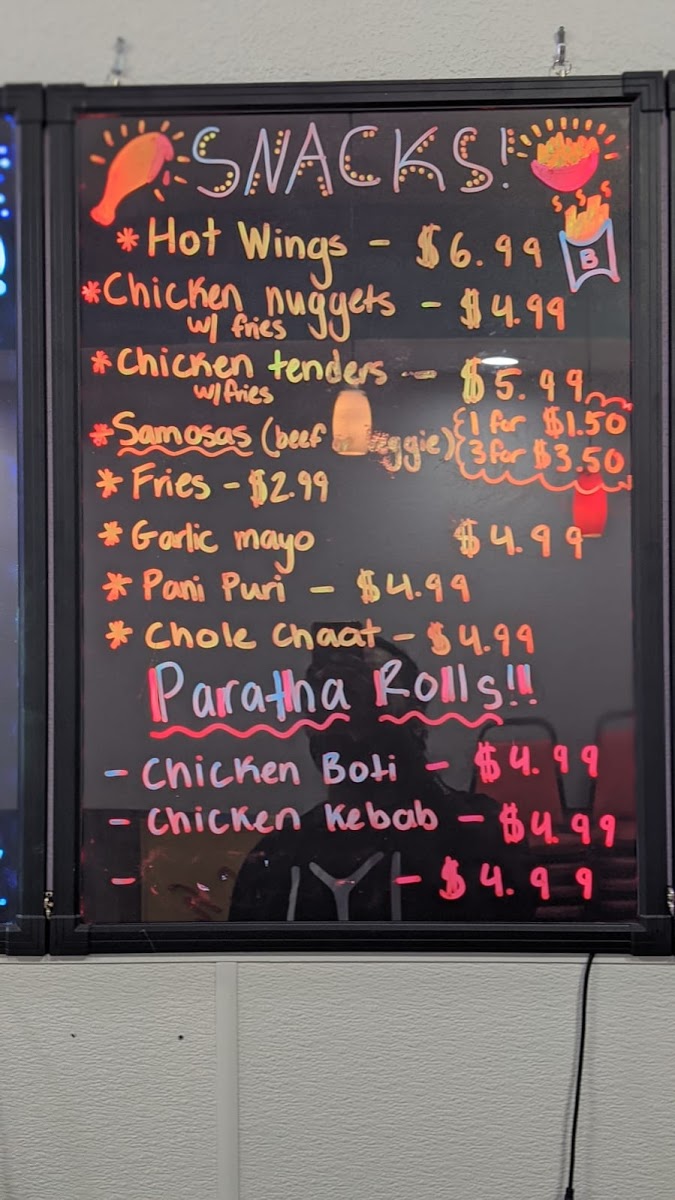 SNACKS!
* Hot Wings - $6.99
B
* Chicken nuggets - $4.99
w/ fries
* Chicken tenders - $5.99
w/fries
* Samosas (beef {1 for $1.50
3 for $3.50
* Fries - $2.99
* Garlic mayo $4.99
* Pani Puri - $4.99
* Chole Chaat - $4.99
Paratha Rolls!!
- Chicken Boti - $4.99
- Chicken Kebab - $4.99
- - $4.99